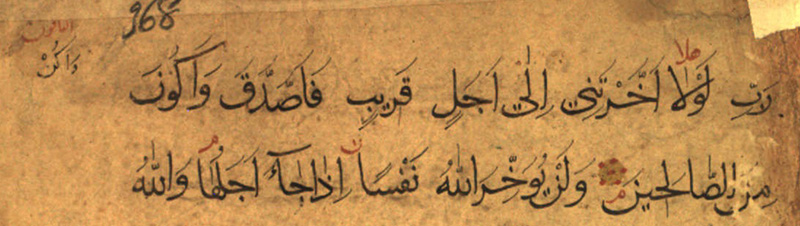 968
وَاكُنْ
هلا
رَبِّ لَوْلَا اَخَّرْتَنِي اِلٰي اَجَلٍ قَرِيبٍ فَاَصَّدَّقَ وَاَكُونَ
مِنَ الصَّالِحِينَ م وَلَنْ يُوَخِّرَ اللهُ نَفْسًا ن اِذَا جَآءَ اَجَلُهَا م وَاللهُ